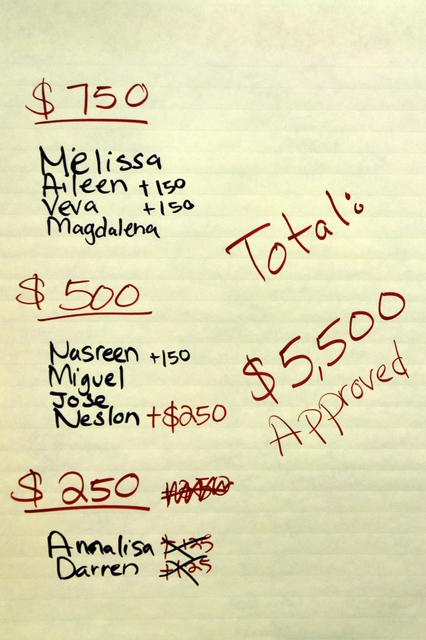 $750
Melissa
Aileen +150
Veva +150
Magdalena
$500
Nasreen +150
Miguel
Jose
Neslon +$250
$250
Annalisa +125
Darren +125
Total:
$5,500
Approved